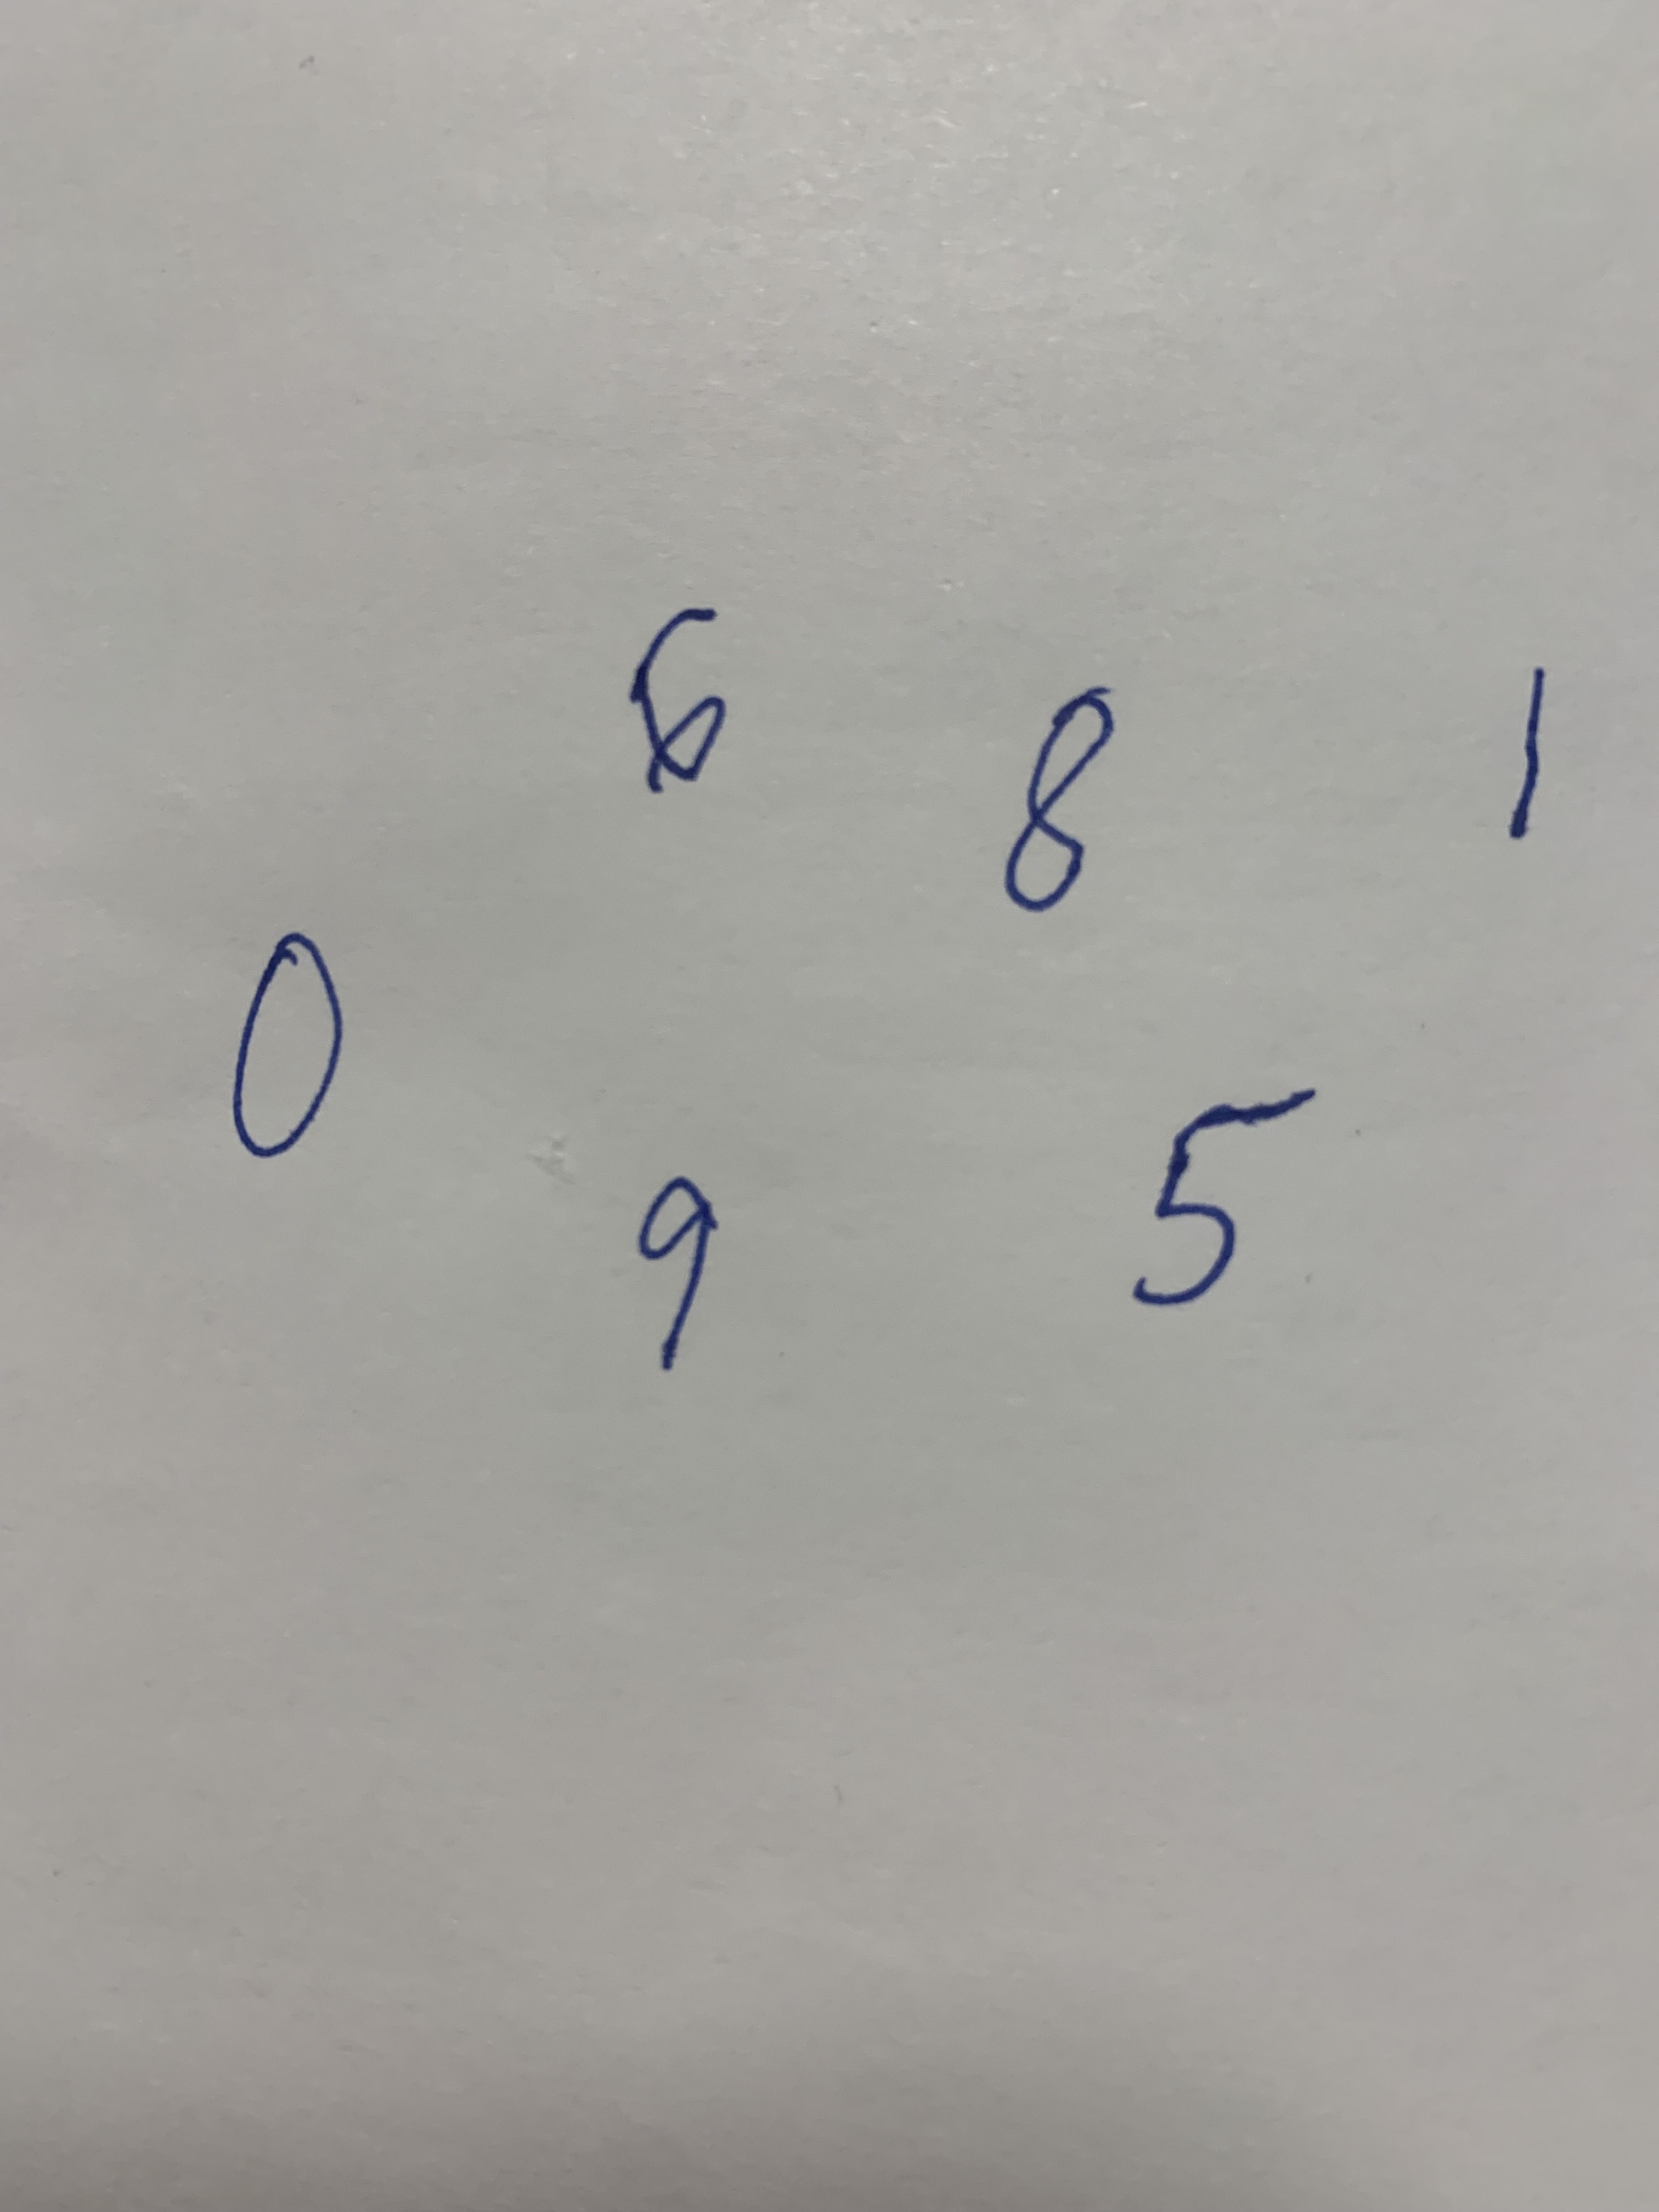 6 8 1
0
9 5